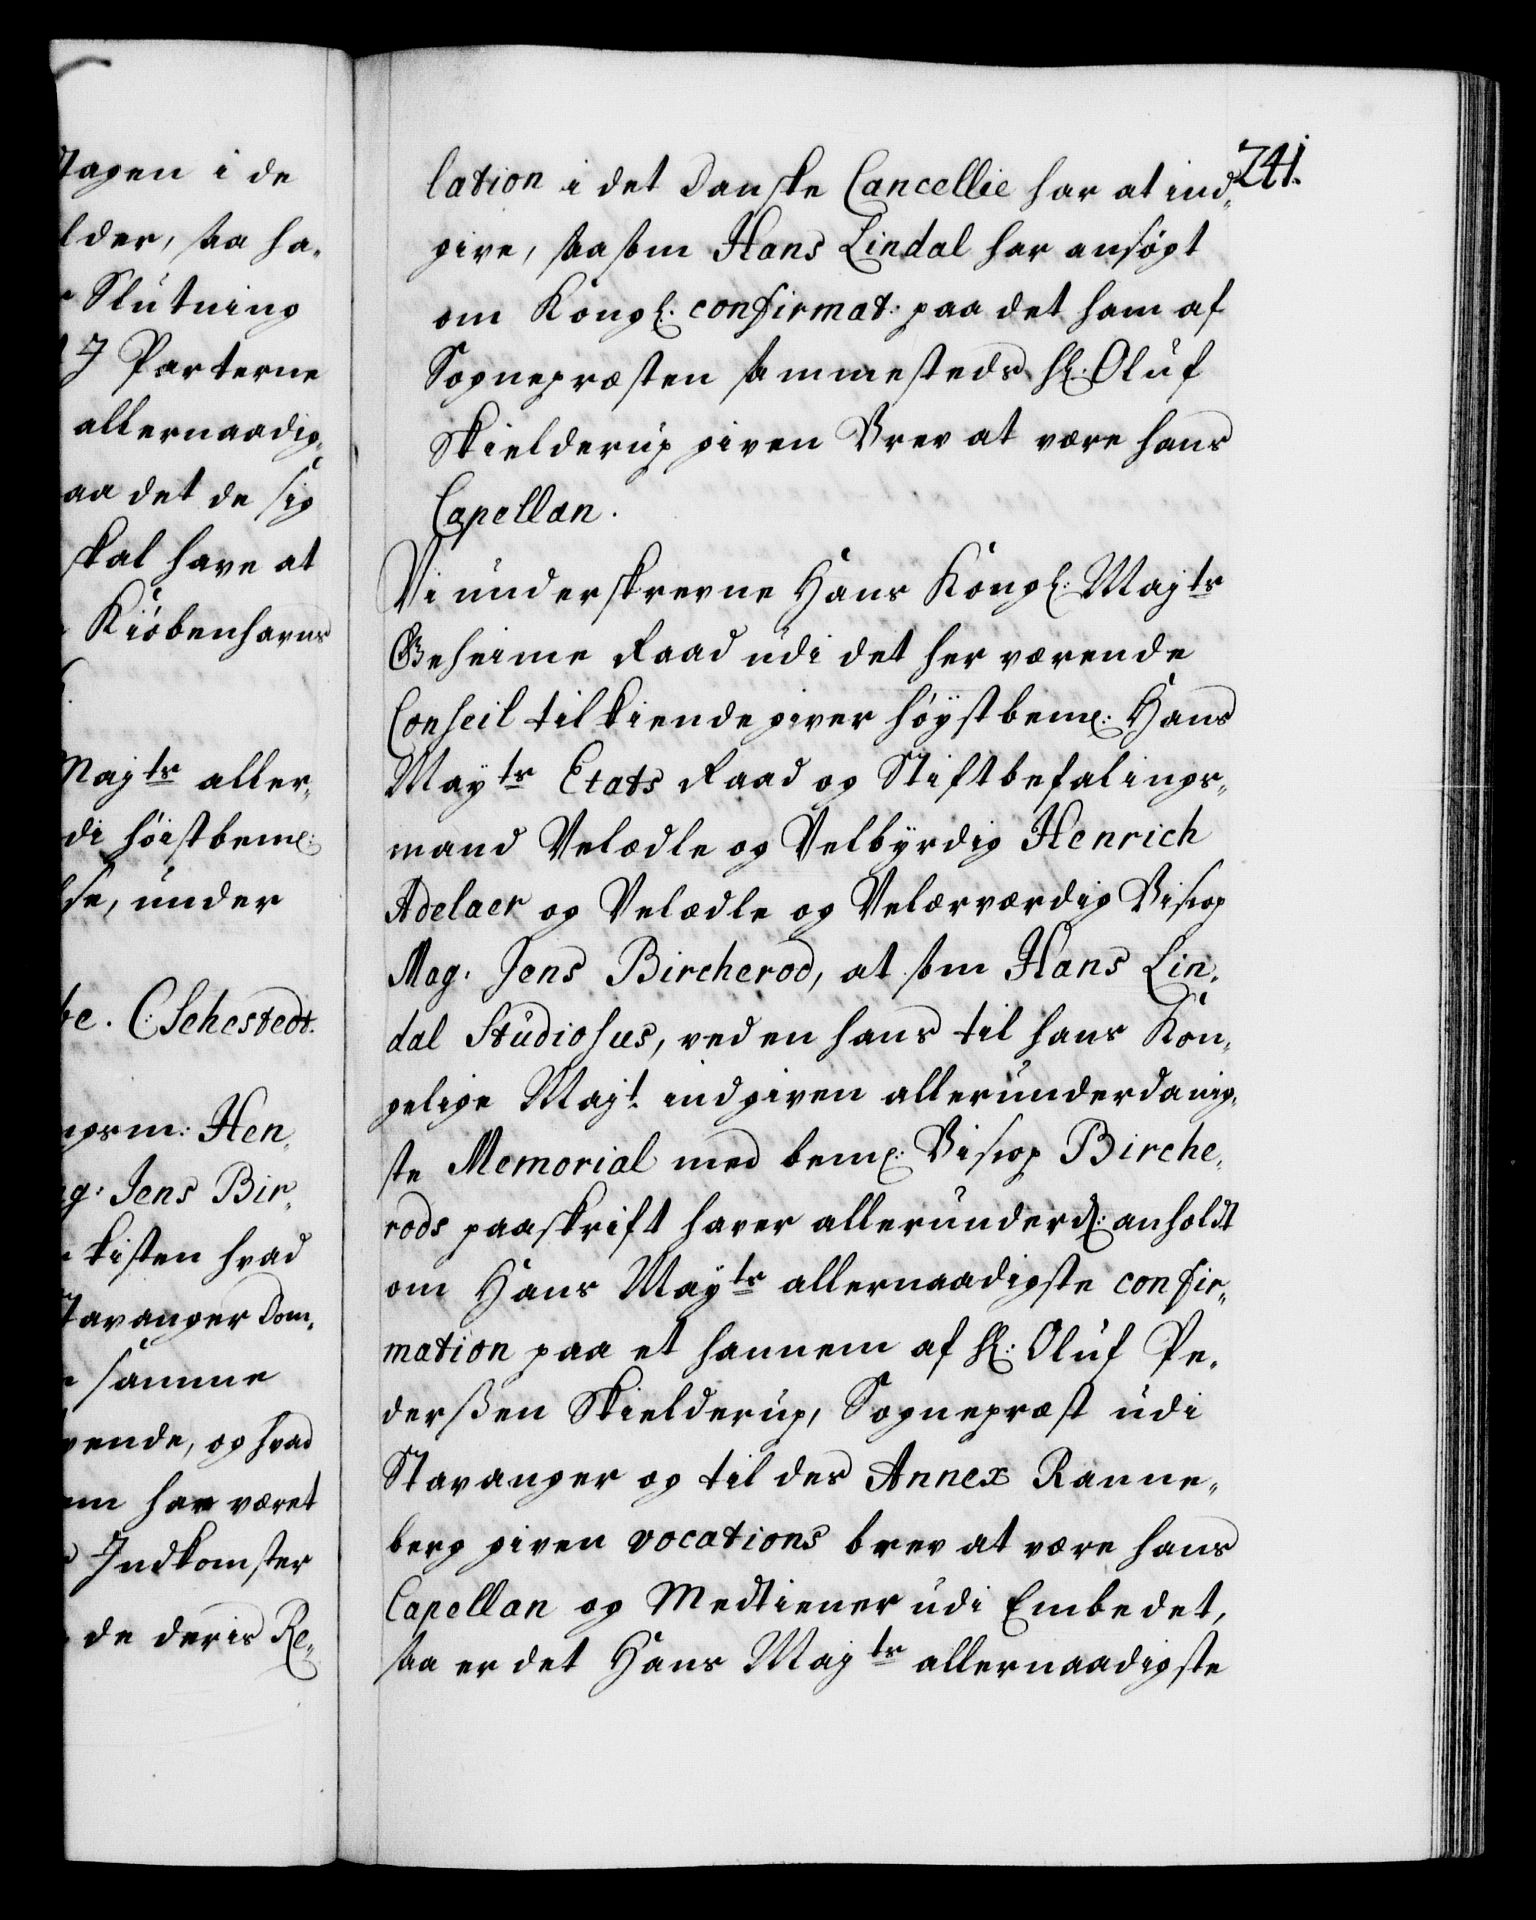 tagen i de
lder, saa ha-
Slutning
I Parterne
allernaadig-
aa det de sig
skal have at
Kiöbenhavns
Majts aller-
di höistbemt:
se, under
be. C: Sehestedt.
ngsm: Hen-
g: Jens Bir-
kisten hvad
Stavanger Dom-
samme
vende, og hvad
em har været
Indkomster
de deris Re-
241.
lation i det Danske Cancellie har at ind-
give, saasom Hans Lindal har ansøgt
om Kongl. confirmat: paa det ham af
Sognepræsten sammesteds Hr. Oluf
Skielderup given Brev at være hans
Capellan.
Vi underskrevne Hans Kongl: Majts
Geheime Raad udi det her værende
Conseil tilkiendegiver höÿstbemt: Hans
Mayts Etats Raad og Stiftbefalings-
mand Velædle og Velbÿrdig Henrich
Adelaer og Velædle og Velærværdig Biscop
Mag: Jens Bircherod, at som Hans Lin-
dal Studiosus, ved en hans til hans Kon-
gelige Majt. indgiven allerunderdanig-
ste Memorial med bemt: Biscop Birche-
rods paaskrift haver allerunderd: anholdt
om Hans Maÿts allernaadigste confir-
mation paa et hannem af Hr: Oluf Pe-
derßen Skielderup, Sognepræst udi
Stavanger og til des Annex Ranne-
berg given vocations brev at være hans
Capellan og Medtiener udi Embedet,
saa er det Hans Majts allernaadigste